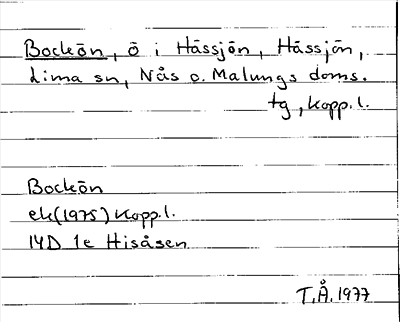 Bockön, ö i Hässjön, Hässjön,
Lima sn, Nås o. Malungs doms.
tg, Kopp. l.
Bockön
ek(1975) Kopp. l.
14D 1e Hisåsen
T.Å. 1977